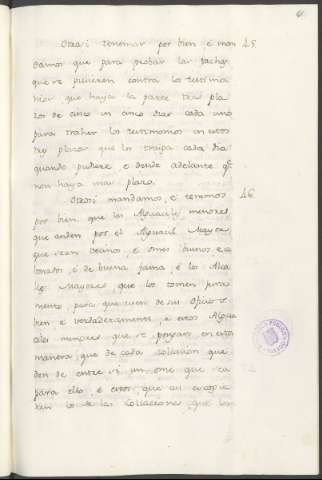 Otrosi tenemos por bien, e man 45
damos que para probar las tachas
que se pusieren contra los testimo
nios, que haya la parte tres pla
zos de cinco en cinco dias cada uno
para traher los testimonios en estos
tres plazos que los traiga cada dia
quando pudiere e dende adelante q.e
non haya mas plazo.
Otrosi mandamos, e tenemos 46
por bien que los Alguaciles menores
que anden por el Alguacil Mayor
que sean vecinos, e omes buenos e a
bonados, e de buena fama, e los Alcal
des Mayores que los tomen jura
mento, para que usen de su oficio
bien e verdaderamente, e estos Algua
ciles menores que se pongan en esta
manera, que de cada collacion que
den de entre si un ome que sea
para ello, e estos que an escogie
ren los de las Collaciones, que los